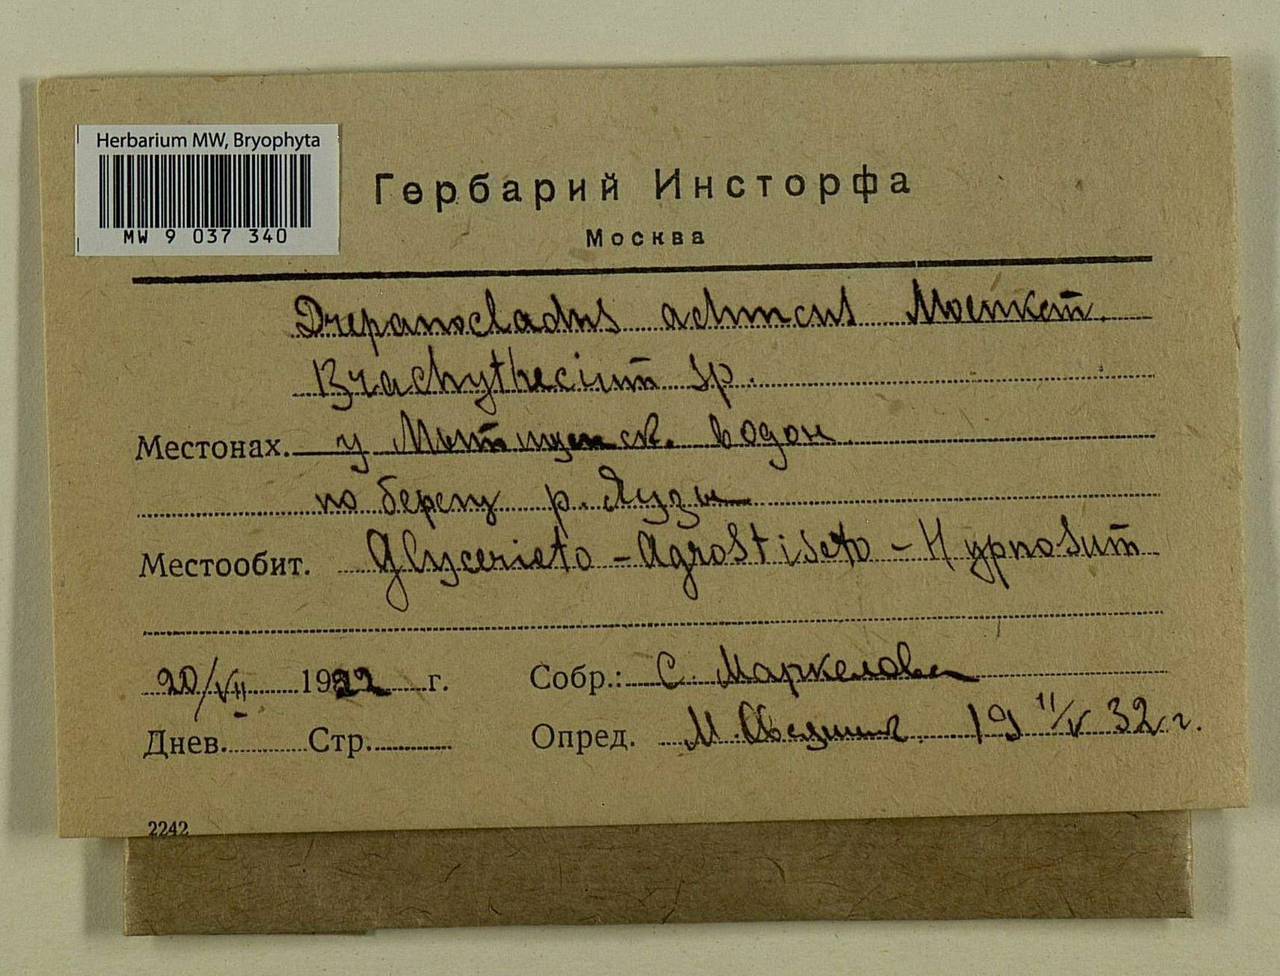 Herbarium MW, Bryophyta
MW 9 037 340
Гербарий Инсторфа
Москва
Drepanocladus aduncus Moenkem.
Brachythecium sp.
Местонах. у Мытищенск. водон
по берегу р. Яузы
Местообит. Glycerieto - Agrostiseto - Hypnosum
20/VII 1922 г. Собр.: С. Маркелова
Днев. Стр. Опред. М. 19 11/V 32 г.
2242